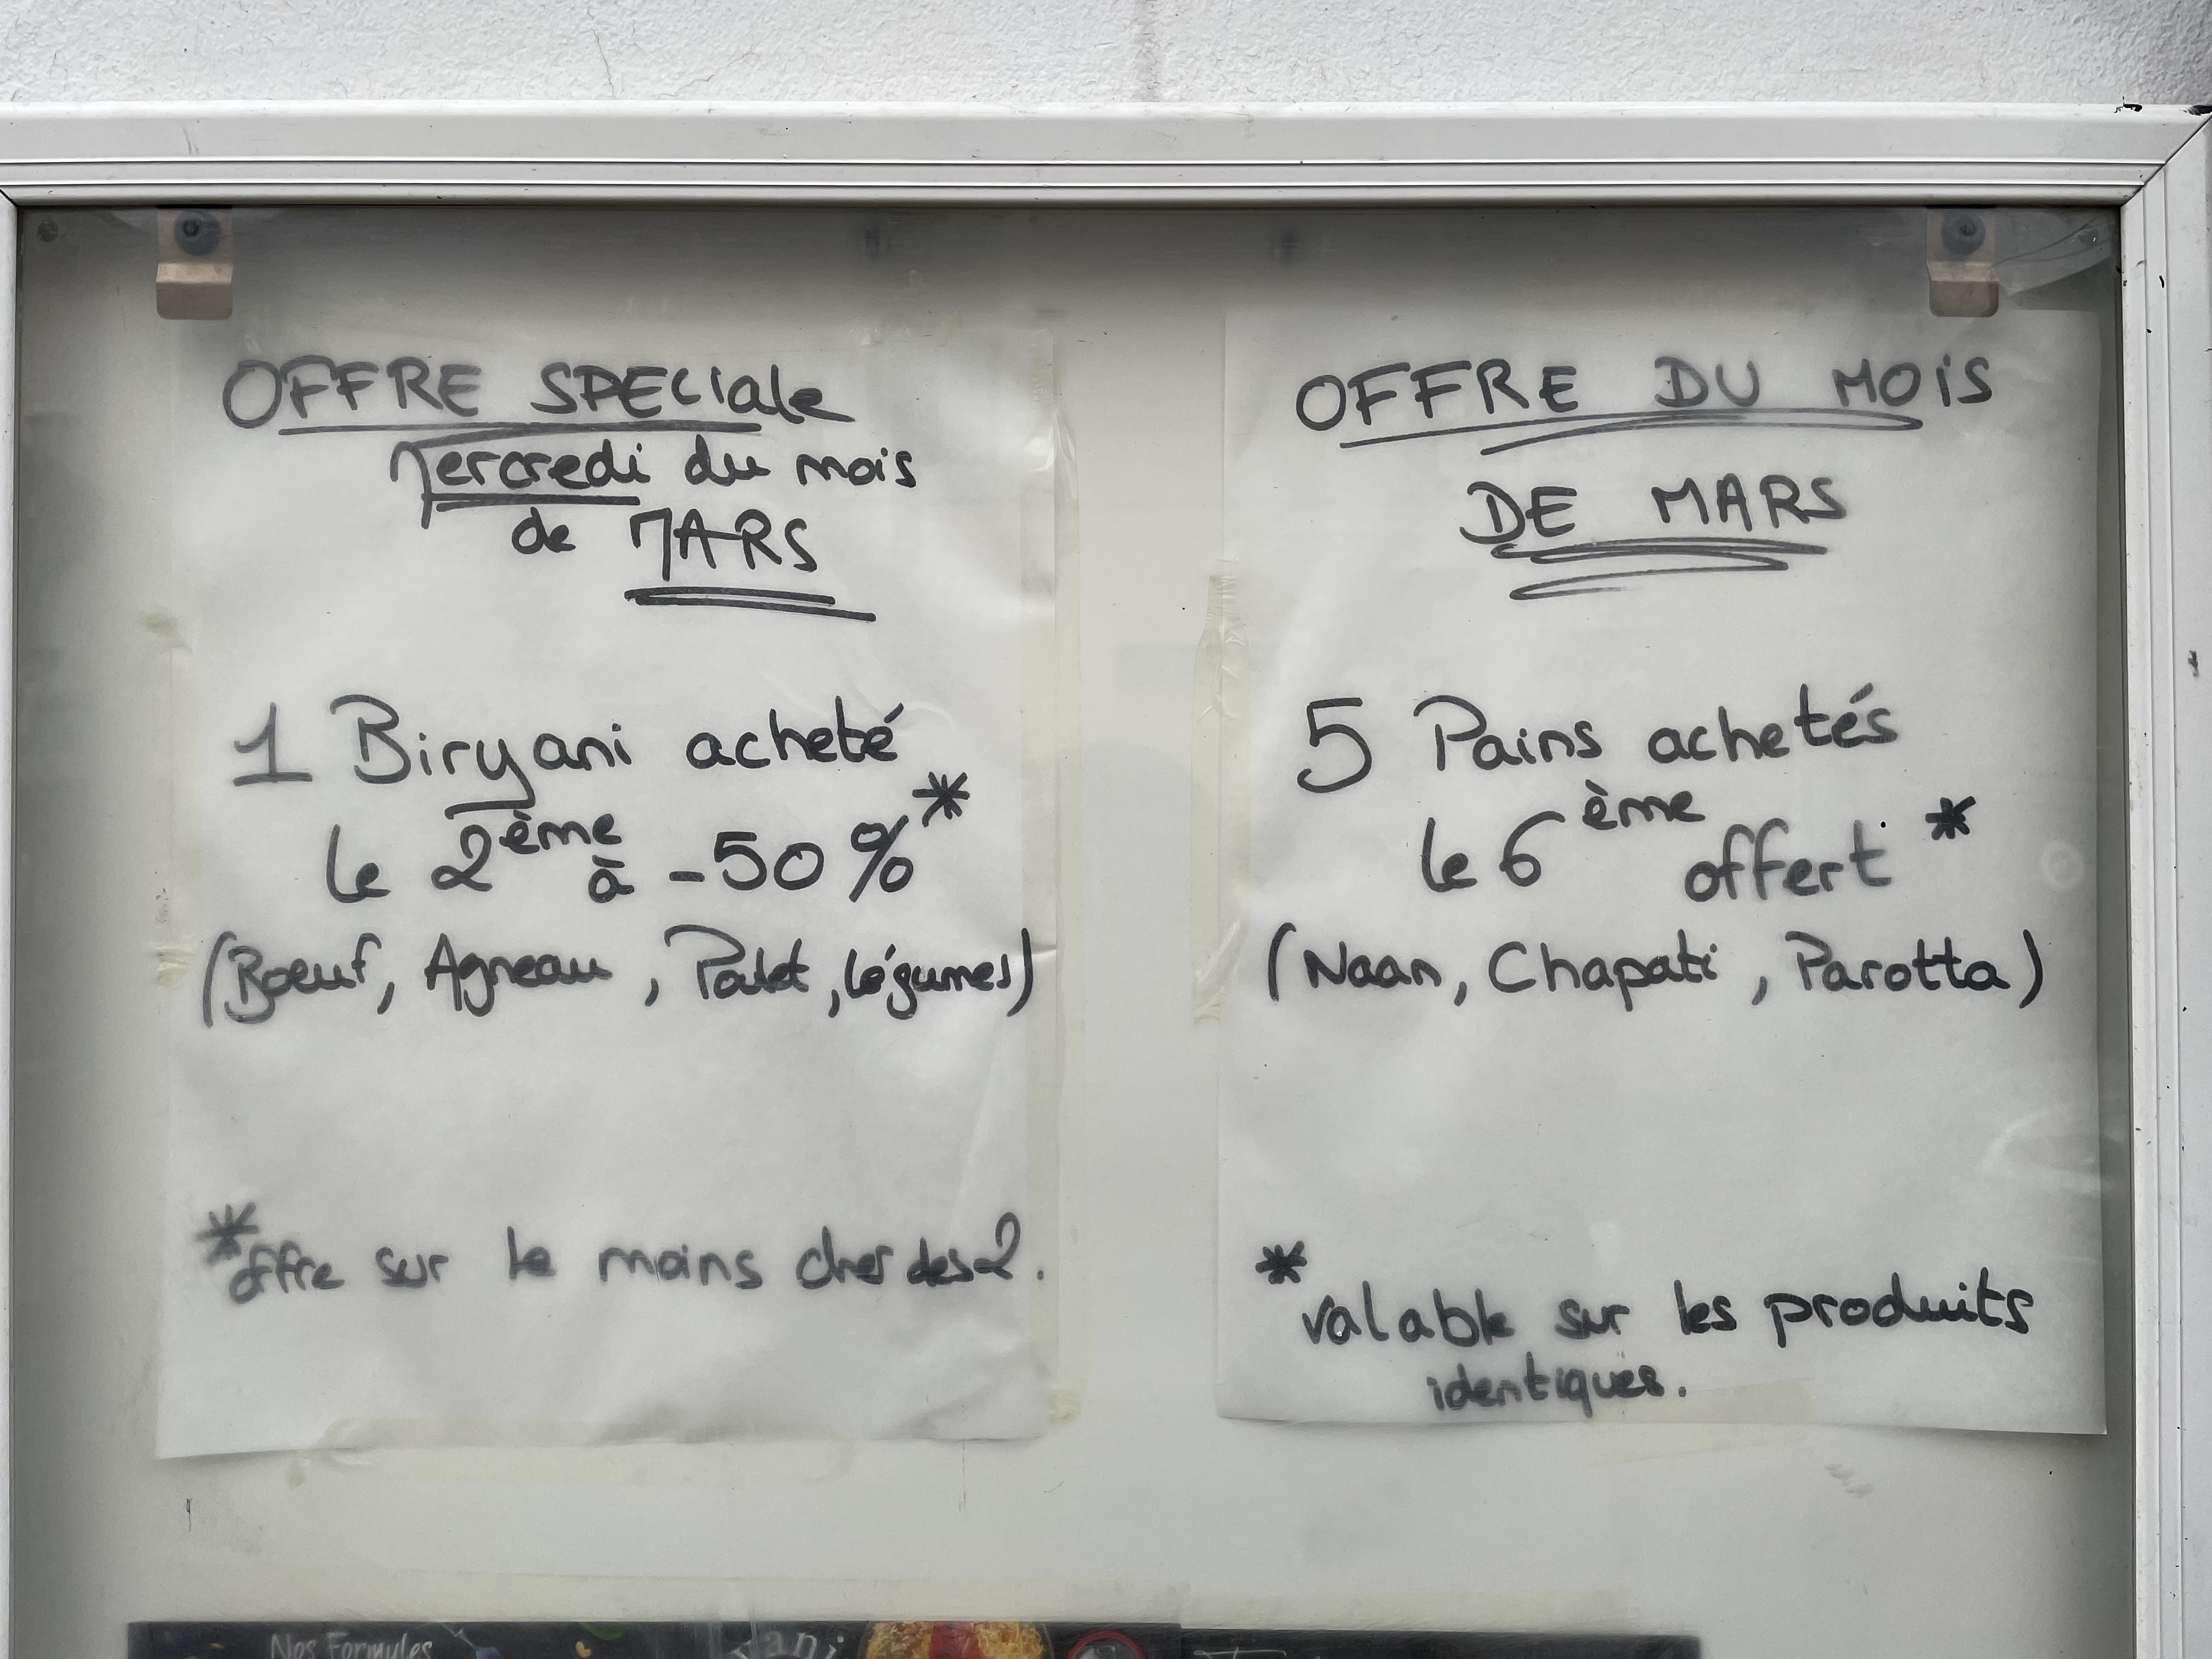 OFFRE SPECiale
Mercredi du mois
de MARS
1 Biryani acheté
le 2ème à -50%*
(Boeuf, Agneau, Poulet, légumes)
*offre sur le moins cher des 2.
OFFRE DU MOiS
DE MARS
5 Pains achetés
le 6ème offert *
(Naan, Chapati, Parotta)
*valable sur les produits
identiques.
Nos Formules